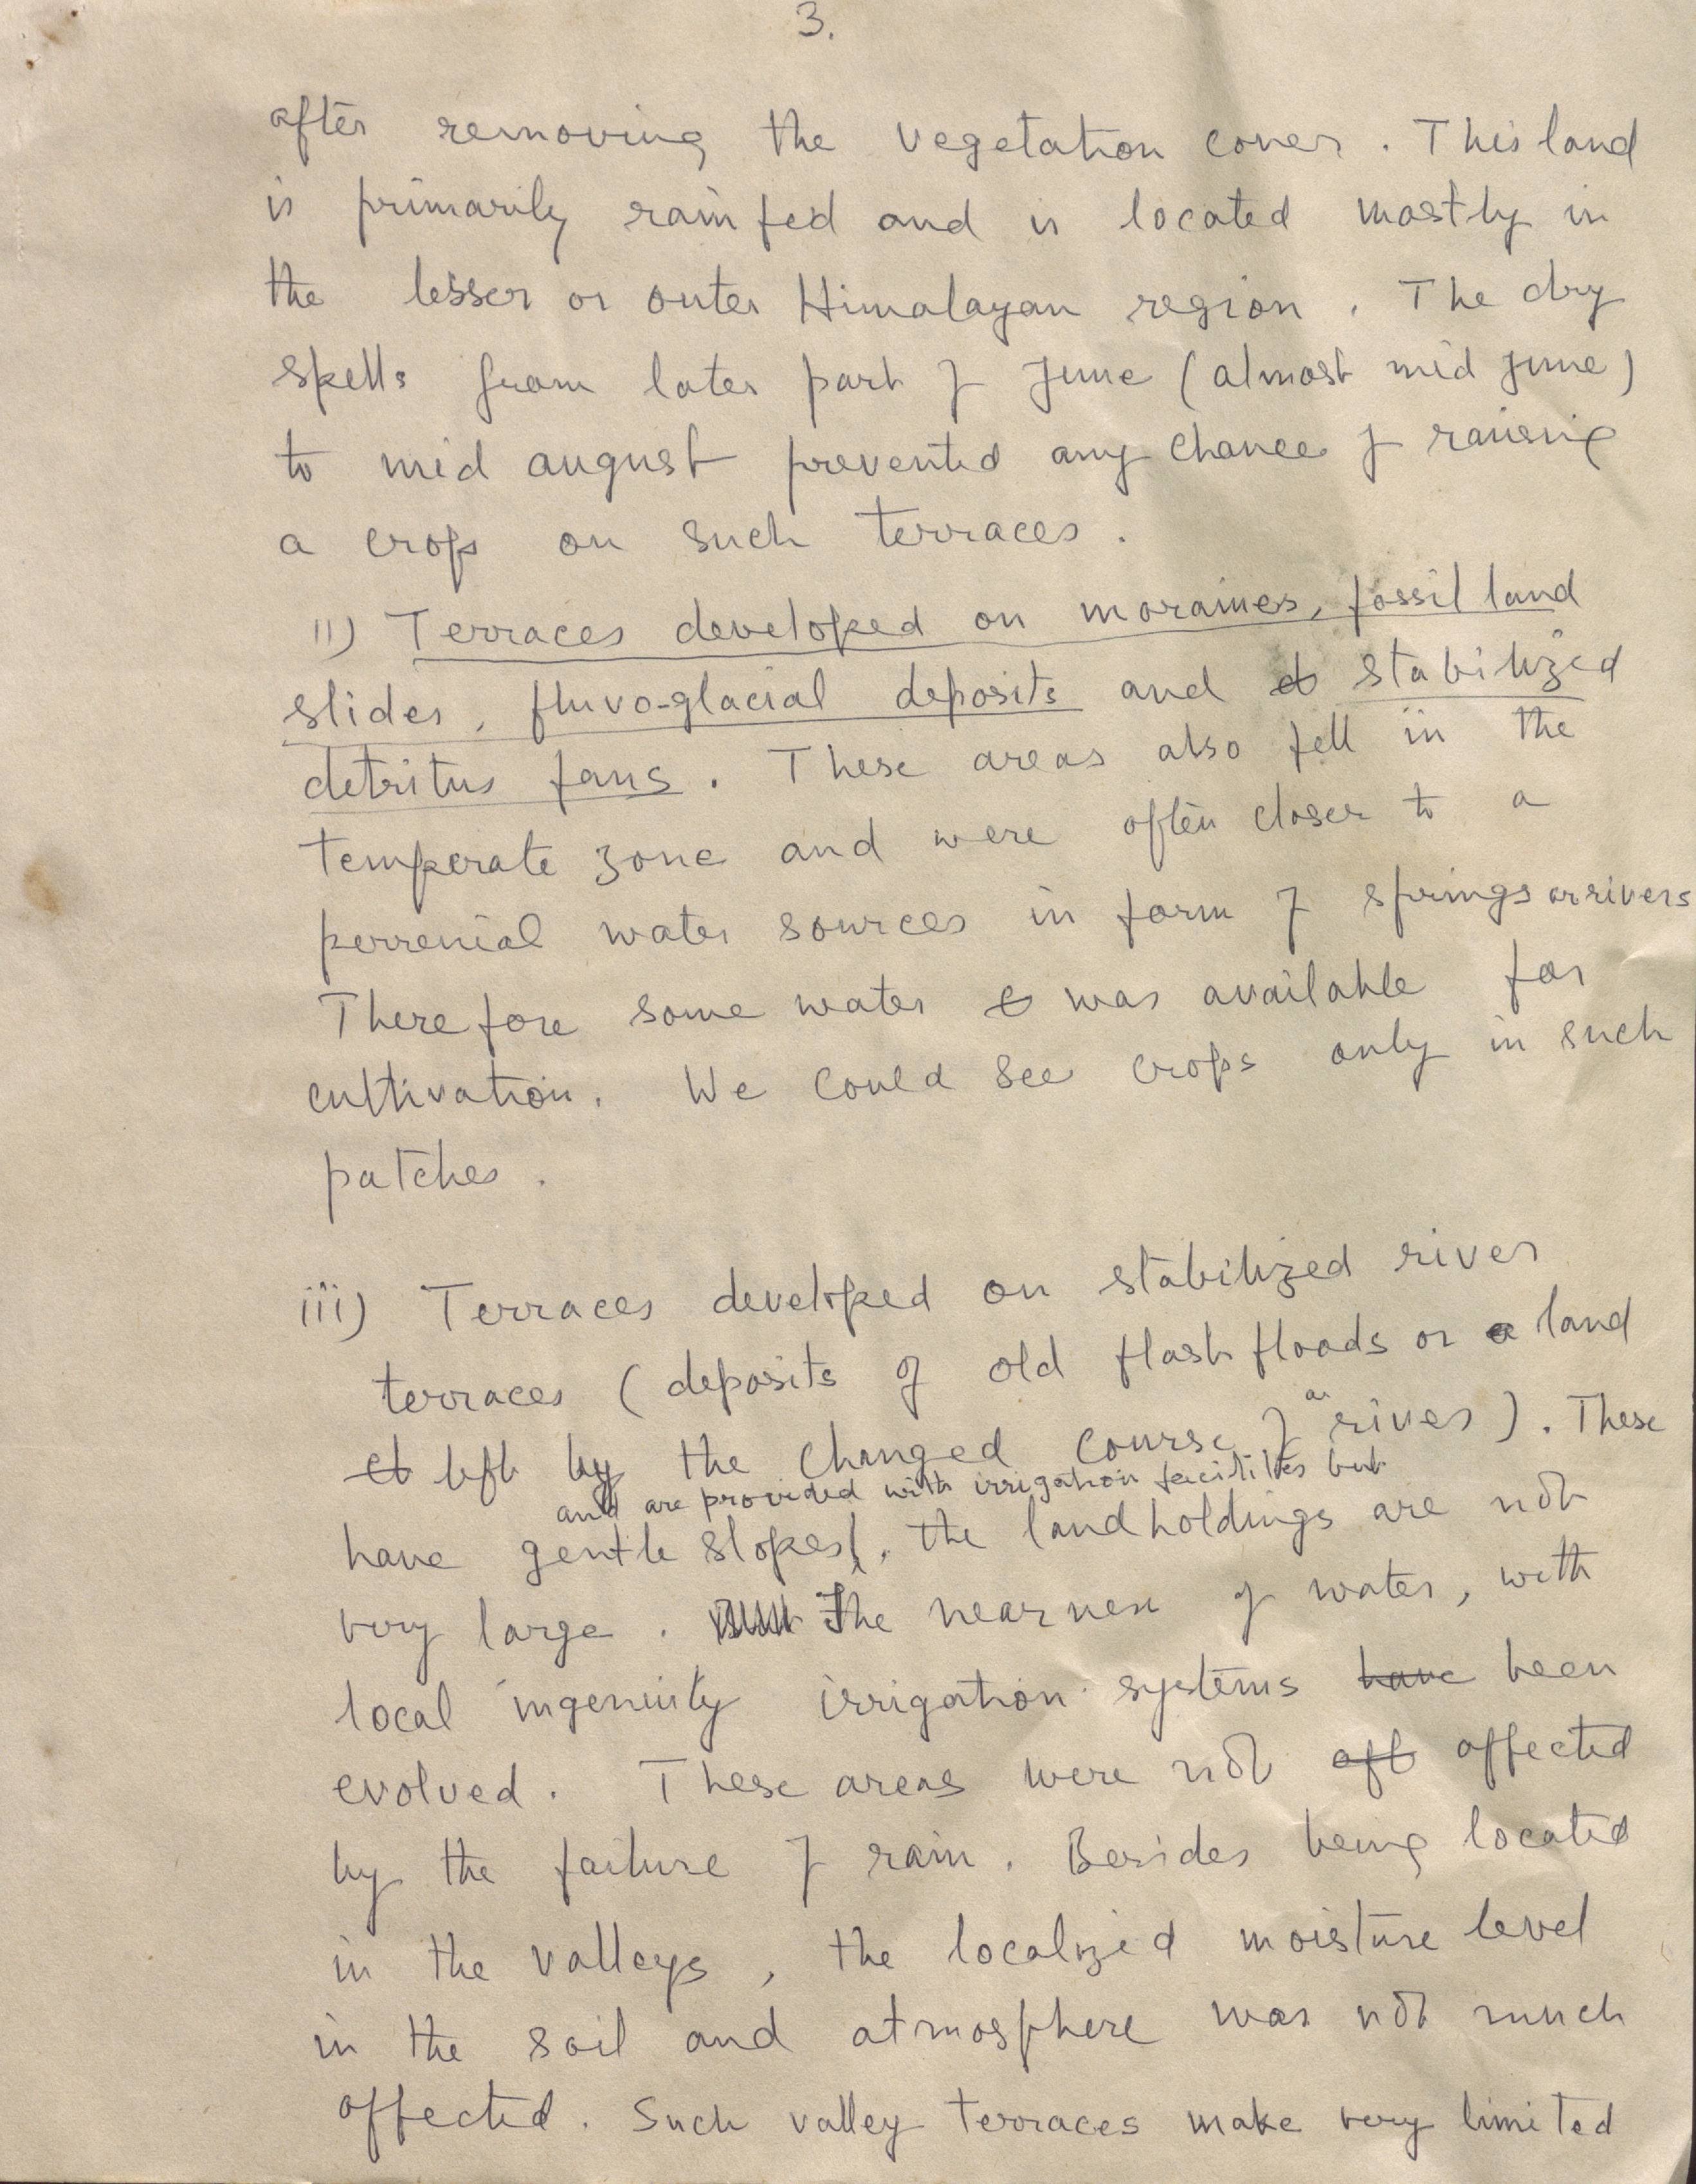 3.
after removing the vegetation cover. This land
is primarily rain fed and is located mostly in
the lesser or outer Himalayan region. The dry
spells from later part of June (almost mid June)
to mid august prevented any chance of raising
a crop on such terraces.
ii) Terraces developed on moraines, fossil land
slides, fluvo-glacial deposits and st stabilized
detritus fans. These areas also fell in the
temperate zone and were often closer to a
perrenial water sources in form of springs or rivers
Therefore some water was available for
cultivation. We could see crops only in such
patches.
iii) Terraces developed on stabilized river
terraces (deposits of old flash floods or a land
left by the changed course of a river). These
and are provided with irrigation facilities but
have gentle slopes, the landholdings are not
very large. The nearness of water, with
local ingenuity irrigation systems have been
evolved. These areas were not aft affected
by the failure of rain. Besides being located
in the valleys, the localized moisture level
in the soil and atmosphere was not much
affected. Such valley terraces make very limited